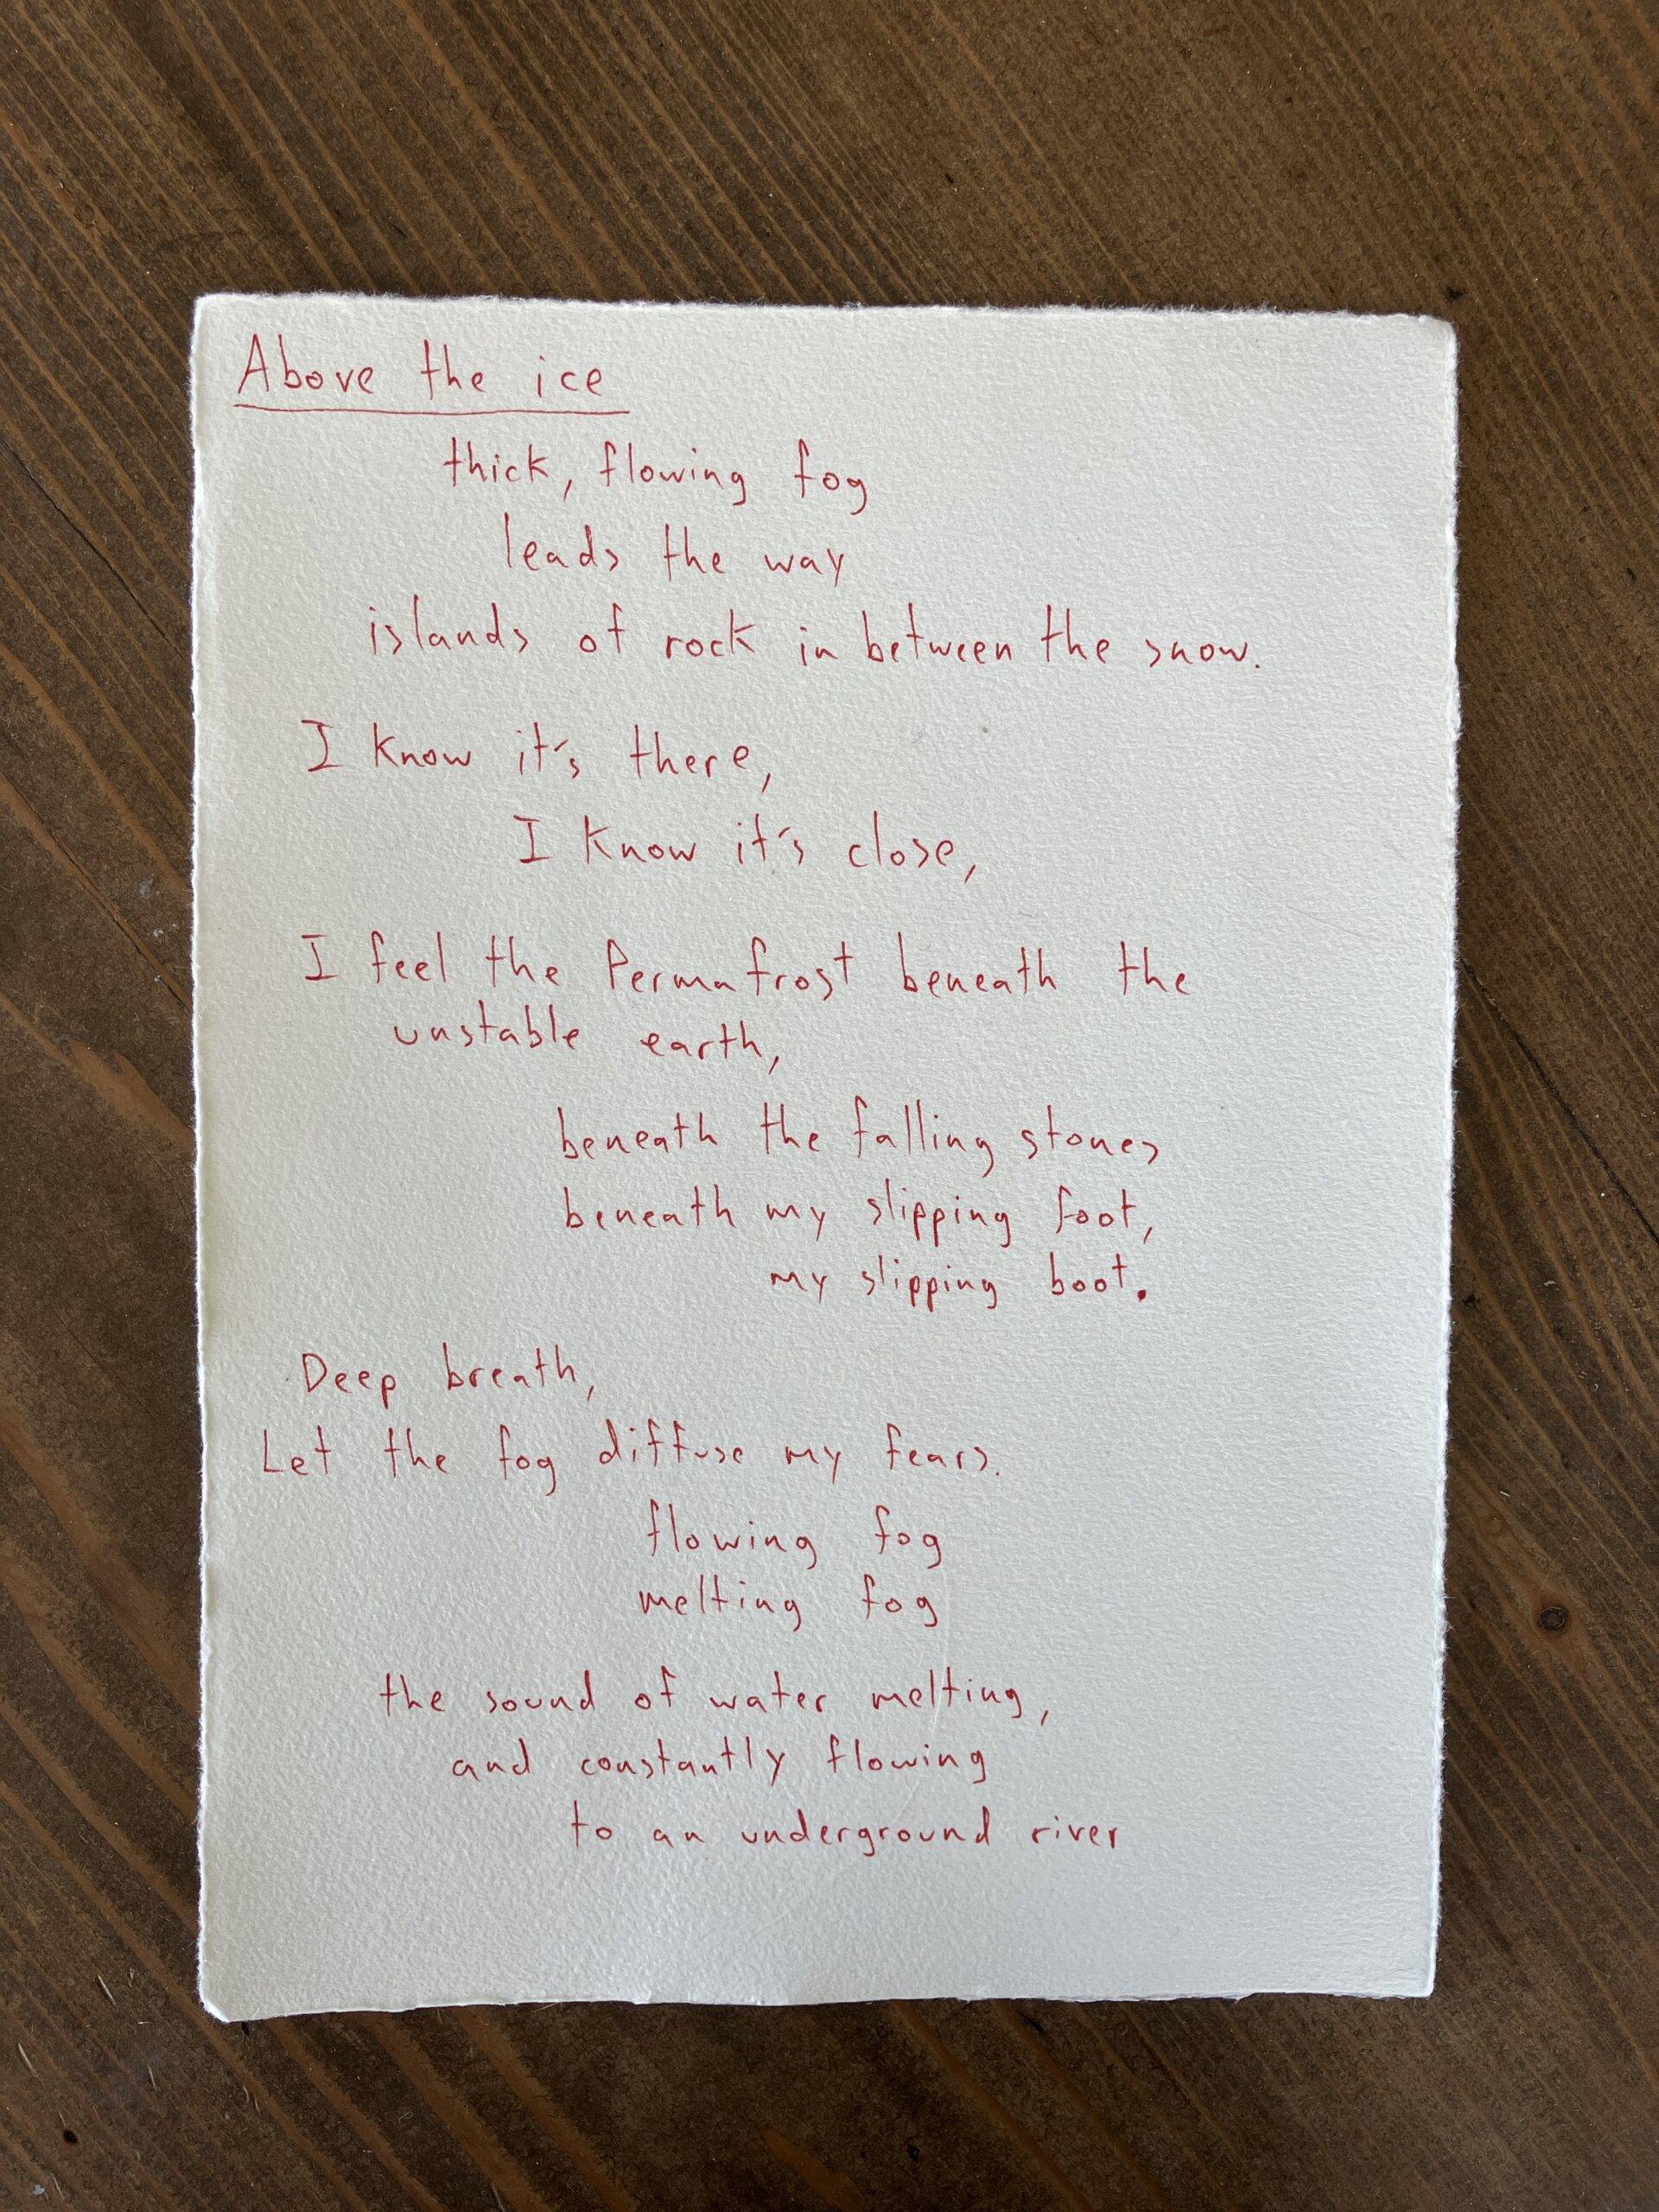 Above the ice
thick, flowing fog
leads the way
islands of rock in between the snow.
I know it's there,
I know it's close,
I feel the Permafrost beneath the
unstable earth,
beneath the falling stones
beneath my slipping foot,
my slipping boot.
Deep breath,
Let the fog diffuse my fears.
flowing fog
melting fog
the sound of water melting,
and constantly flowing
to an underground river